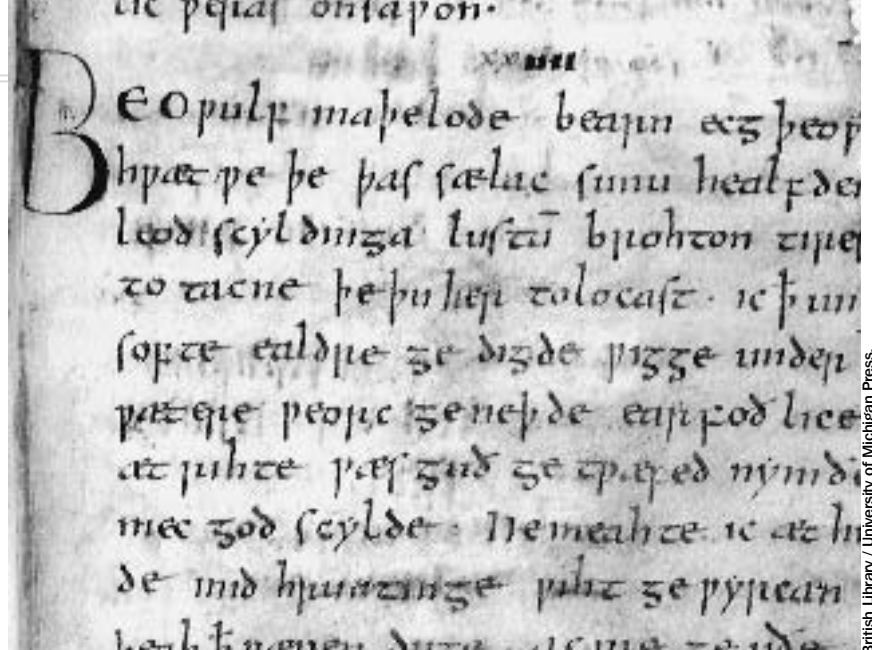 lic ƿeras onsaƿon·
xxiiii
BEOǷulf maþelode bearn ecgþeoƿ
hƿæt ƿe þe þas sælac sunu healfden
leod scyldinga lustū brohton tires
to tacne þe þu her tolocast · ic ꝥ un
softe ealdre ge digde ƿigge under
ƿætere ƿeorc geneþde earfoð lice
æt rihte ƿæs guð ge tƿæfed nymðe
mec god scylde · Ne meahte ic æt h
de mid hruntinge ƿiht ge ƿyrcan
British Library / University of Michigan Press.